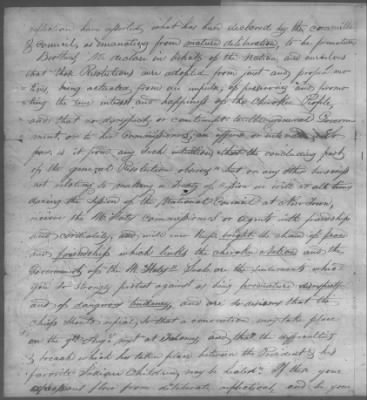 reflection have asserted, what has been declared by the committee
& council, as emanating from mature deliberation, to be premature
Brothers We declare in behalf of the Nation, and ourselves
that these Resolutions were adopted from just and proper mo
tives, being actuated from an impulse of preserving and promo
ting the true interest and happiness of the Cherokee People,
and that no disrespect or contempt to the General Govern
ment or to her Commissioners, was offered or intended. So
far is it from any such intention that the concluding part
of the general Resolution observes "that on any other business
not relating to making a Treaty of Cession we will at all times
during the Session of the National Council at New Town,
receive the U. States Commissioners or Agents with friendship
and cordiality, and will ever keep bright the chain of peace
and friendship which links the Cherokee Nation and the
Government of the U. States". Such are the sentiments which
you so strongly protest against as being premature disrespectful
and of dangerous tendency, and are so desirous that the
Chiefs should repeal, so that a convention may take place
on the 9th Augt. next at Tahoney and, that the difficulties
& breach which has taken place between the President & his
favorite Indian Children, may be healed. If then your
expressions flow from deliberate reflections, and be your